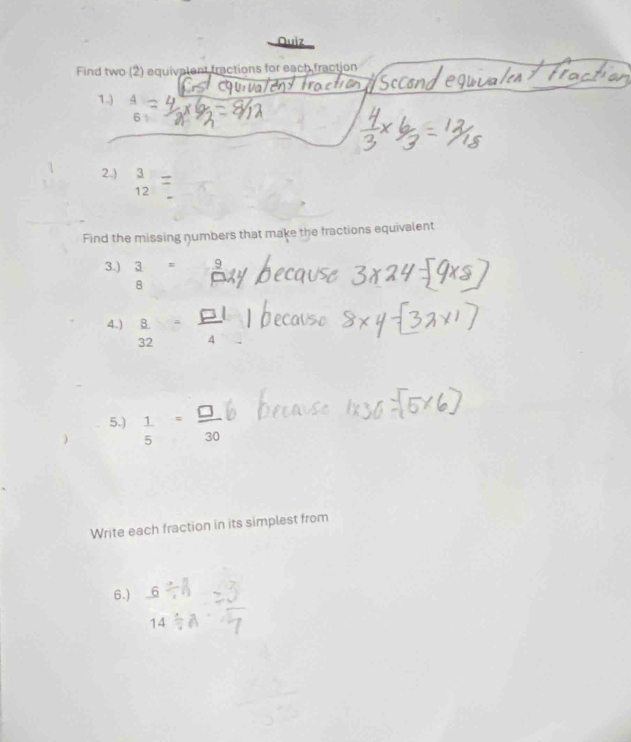 Quiz
Find two (2) equivalent fractions for each fraction
first equivalent fraction // Seccond equivalent fraction
1.) 4/6 = 4/2 x 6/2 = 8/12
4/3 x 6/3 = 12/18
2.) 3/12 =
Find the missing numbers that make the fractions equivalent
3.) 3/8 = 9/□ 24 because 3x24=[9x8]
4.) 8/32 = □/4 1 because 8x4=[32x1]
5.) 1/5 = □/30 6 because 1x30=[5x6]
Write each fraction in its simplest from
6.) 6/14 ÷2 ÷2 = 3/7